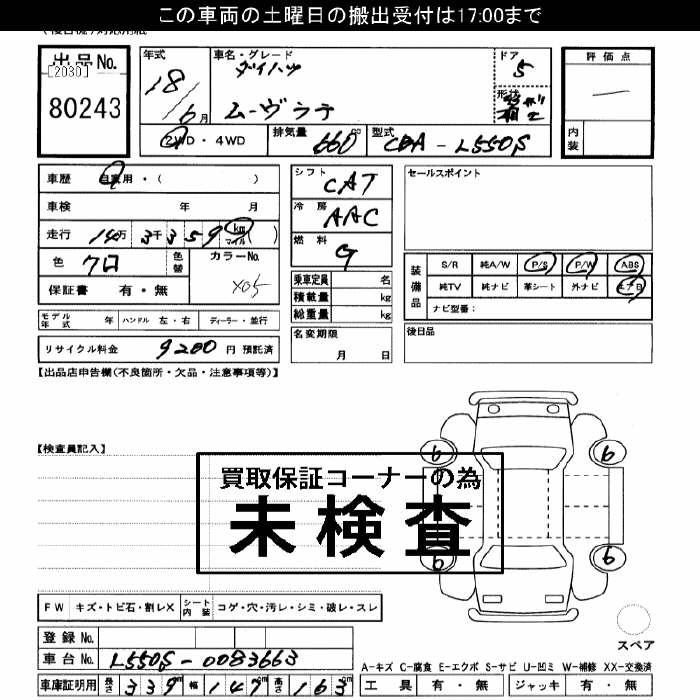 この車両の土曜日の搬出受付は17:00まで
出品No.
[2030]
80243
年式
18/6月
車名・グレード
ダイハツ
ムーヴラテ
ドア
5
形状
評価点
内装
2WD・4WD
排気量 660 cc
型式 CBA-L550S
車歴 自家用・( )
車検 年 月
走行 14万3千359 km マイル ( )
色 クロ
色替
カラーNo.
X05
保証書 有・無
シフト CAT
冷房 AAC
燃料 G
乗車定員 名
積載量 kg
総重量 kg
セールスポイント
装備品
S/R 純A/W P/S P/W ABS
純TV 純ナビ 革シート 外ナビ エアB
ナビ型番:
モデル年式 年 ハンドル 左・右 ディーラー・並行
名変期限
月 日
後日品
リサイクル料金 9200 円 預託済
【出品店申告欄(不良箇所・欠品・注意事項等)】
【検査員記入】
6 6
買取保証コーナーの為
未検査
6 6
FW キズ・トビ石・割レX シート内装 コゲ・穴・汚レ・シミ・破レ・スレ
登録No.
車台No. L550S-0083663
スペア
A-キズ C-腐食 E-エクボ S-サビ U-凹ミ W-補修 XX-交換済
車庫証明用 長さ 339 cm 幅 147 cm 高さ 163 cm
工具 有・無 ジャッキ 有・無